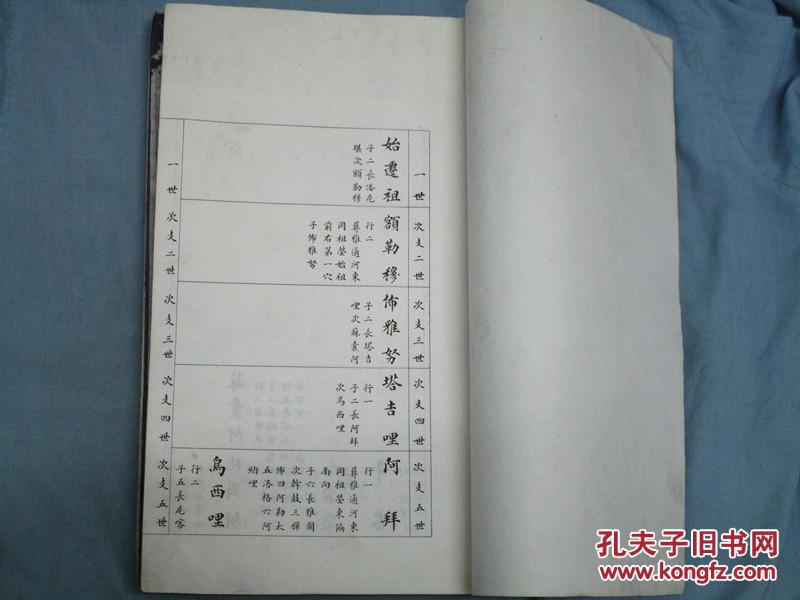 一世
始遷祖
子二長
次額勒穆
次支二世
額勒穆
行二
葬雅通河東
岡祖塋始祖
前右第一穴
子佈雅努
次支三世
佈雅努
子二長塔吉
哩次蘇素阿
次支四世
塔吉哩
行一
子二長阿拜
次烏西哩
次支五世
阿拜
行一
葬雅通河東
岡祖塋東偏
南向
子六長雅蘭
次幹鼓三禪
佈四阿勒太
五洛格六阿
納哩
烏西哩
行二
子五長
一世
次支二世
次支三世
次支四世
次支五世
孔夫子旧书网
www.kongfz.com